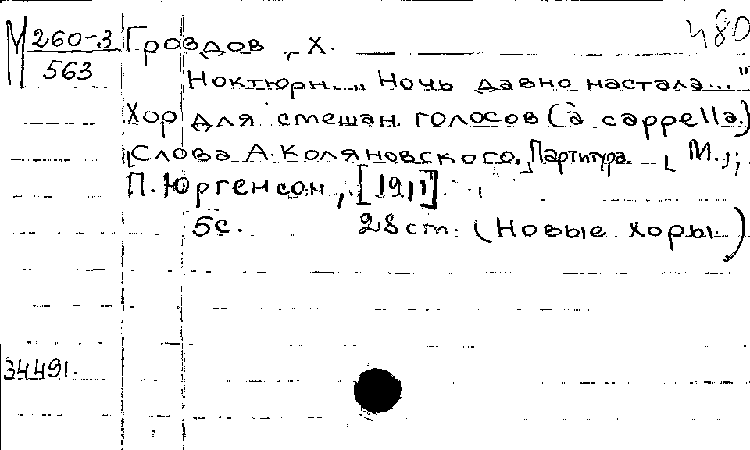 480
М 260-3 Гроздов, Х.
563
Ноктюрн... „Ночь давно настала..."
Хор для смешан. голосов (à cappella)
Слова А. Коляновского. Партитура. М.;
П. Юргенсон, [1911].
5с. 28 cm. (Новые хоры.)
34491.